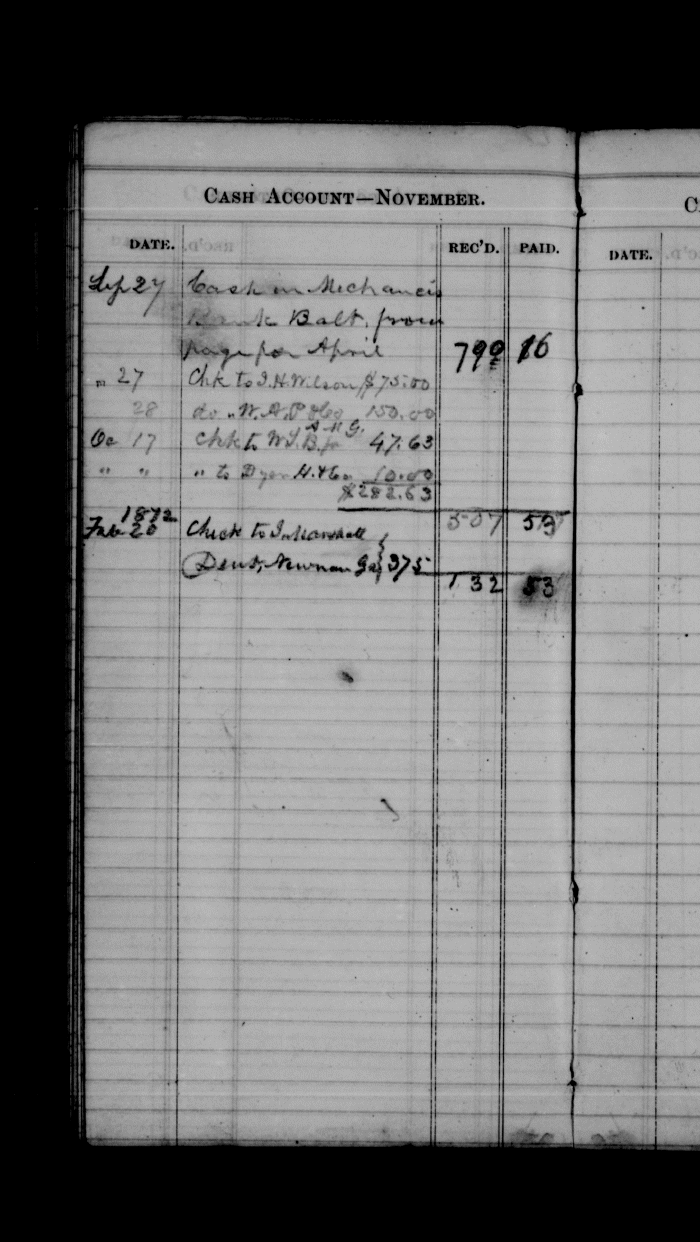 CASH ACCOUNT—NOVEMBER.
DATE. REC'D. PAID.
Sep 27 Cash in Mechanics
Bank Balt, from
page for April 790 16
" 27 Chk to J.H. Wilson $75.00
28 do " W.A.P 150.00
A M G.
Oc 17 Chk to W.S.B. 47.63
" " " to Dyer H. & Co 10.00
$282.63
507 53
1872
Feb 20 Check to J. Marshall
Dent, Newnan Ga 375
132 53
C
DATE.